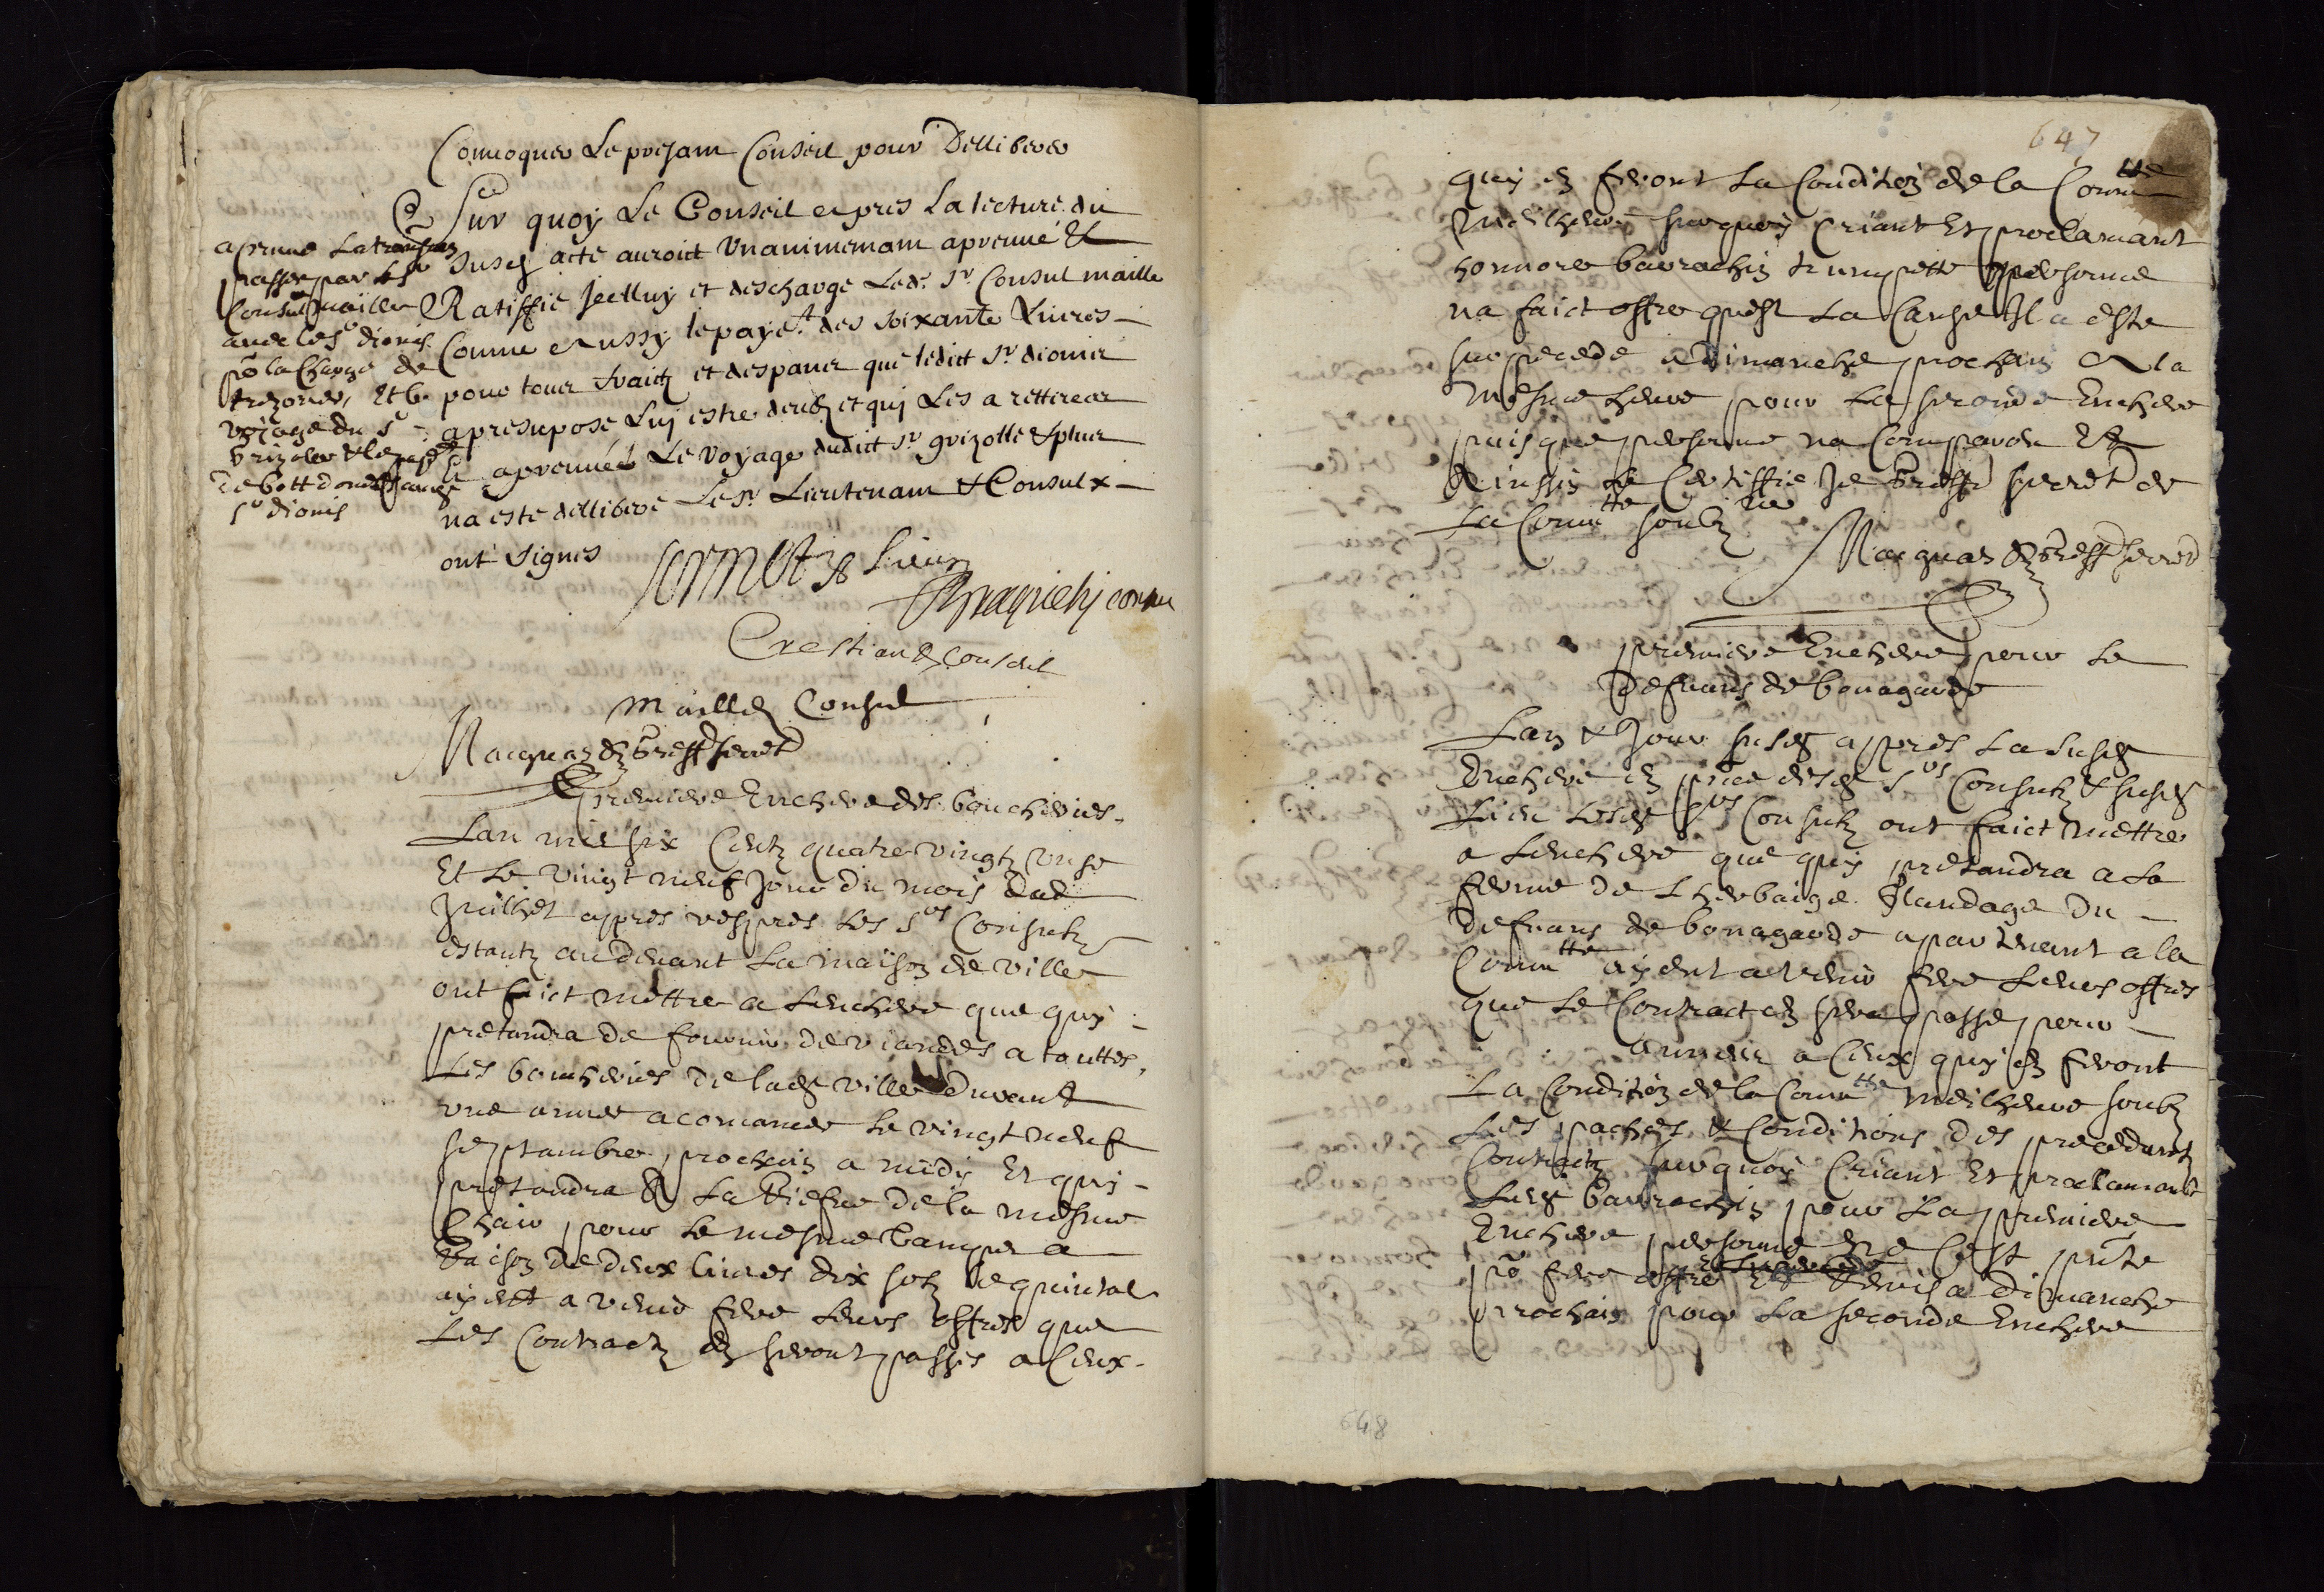 Conuoquer Le presant Conseil pour Delliberer
Sur quoy Le Conseil apres La lecture du
susd acte auroict Vnanimemant aprenué &
Ratiffié Jcelluy et deschargé Led. Sr. Consul maille
Comme aussy le paye.t des soixante Liures
pour tous fraictz et despances que ledict Sr dionis
apresuposé Luy estre deubz et quj Les a retirees
aprenué Le voyage dudict Sr grizolle & plus
na esté delliberé Le Sr. Lieutenam & Consulx
ont signés
aprenué La
passée par Le Sr
Consul mailler
auec le Sr dionis
po la Charge de
trezorier, Et le
voyage du Sr
brizolle & le paye
Sr dionis
Crestian Consul
Maille Consul
Macquar greff secret
premiere Enchere des boucheries.
Lan mil six Centz quatre vingtz Onse
Et Le Vingt neuf Jour du mois de
Juilhet appres vespres Les Srs Consulz
estantz au deuant La maison de ville
ont faict mettre a Lenchere que quy
pretandra de fournir de viandes a touttes
Les boucheries de lad ville Durant
vne annee a comancer Le vingt neuf
septambre prochain a midy Et quy
pretandra A La Riefue de la mesme
Chair pour Le mesme tamps a
Raison de deux Liures dix solz le quintal
ayent a venir fere Leurs offres que
Les Contractz en seront passés a Ceux
647
quy en feront La Condition de la Comutté
Meilheure surquoy Criant Et proclamant
honnore barrachin trumpette personne
na faict offre quest La Cause Jl a esté
surpecede a Dimanche prochain A la
mesme heure pour La seconde Enchere
puis que personne na Comparu Et
Ainssin Le Certiffie Je greffr secret de
La Comutté soubzné
Macquar greff secret
premiere Enchere pour Le
Defrans de bonagarde
Lan & Jour susd appres La susd
Enchere en pnce desd Srs Consulz & susd
Lieu Lesd Srs Consulz ont faict mettre
a Lenchere que quy pretandra a La
ferme de Lherbaige Glandage du
defrans de bonagarde apartenant a la
Comutté ayent a venir fere Leurs offres
que Le Contract en sera passé pour
anneée a Ceux quy en feront
La Condition de la Comutté Meilheure soubz
Les paches & Conditions des precedentz
Contractz surquoy Criant Et proclamant
Led barrachin pour La premiere
Enchere personne ne Cest pnté
po fere offre Et Renvis a Dimanche
prochain pour La seconde Enchere
648